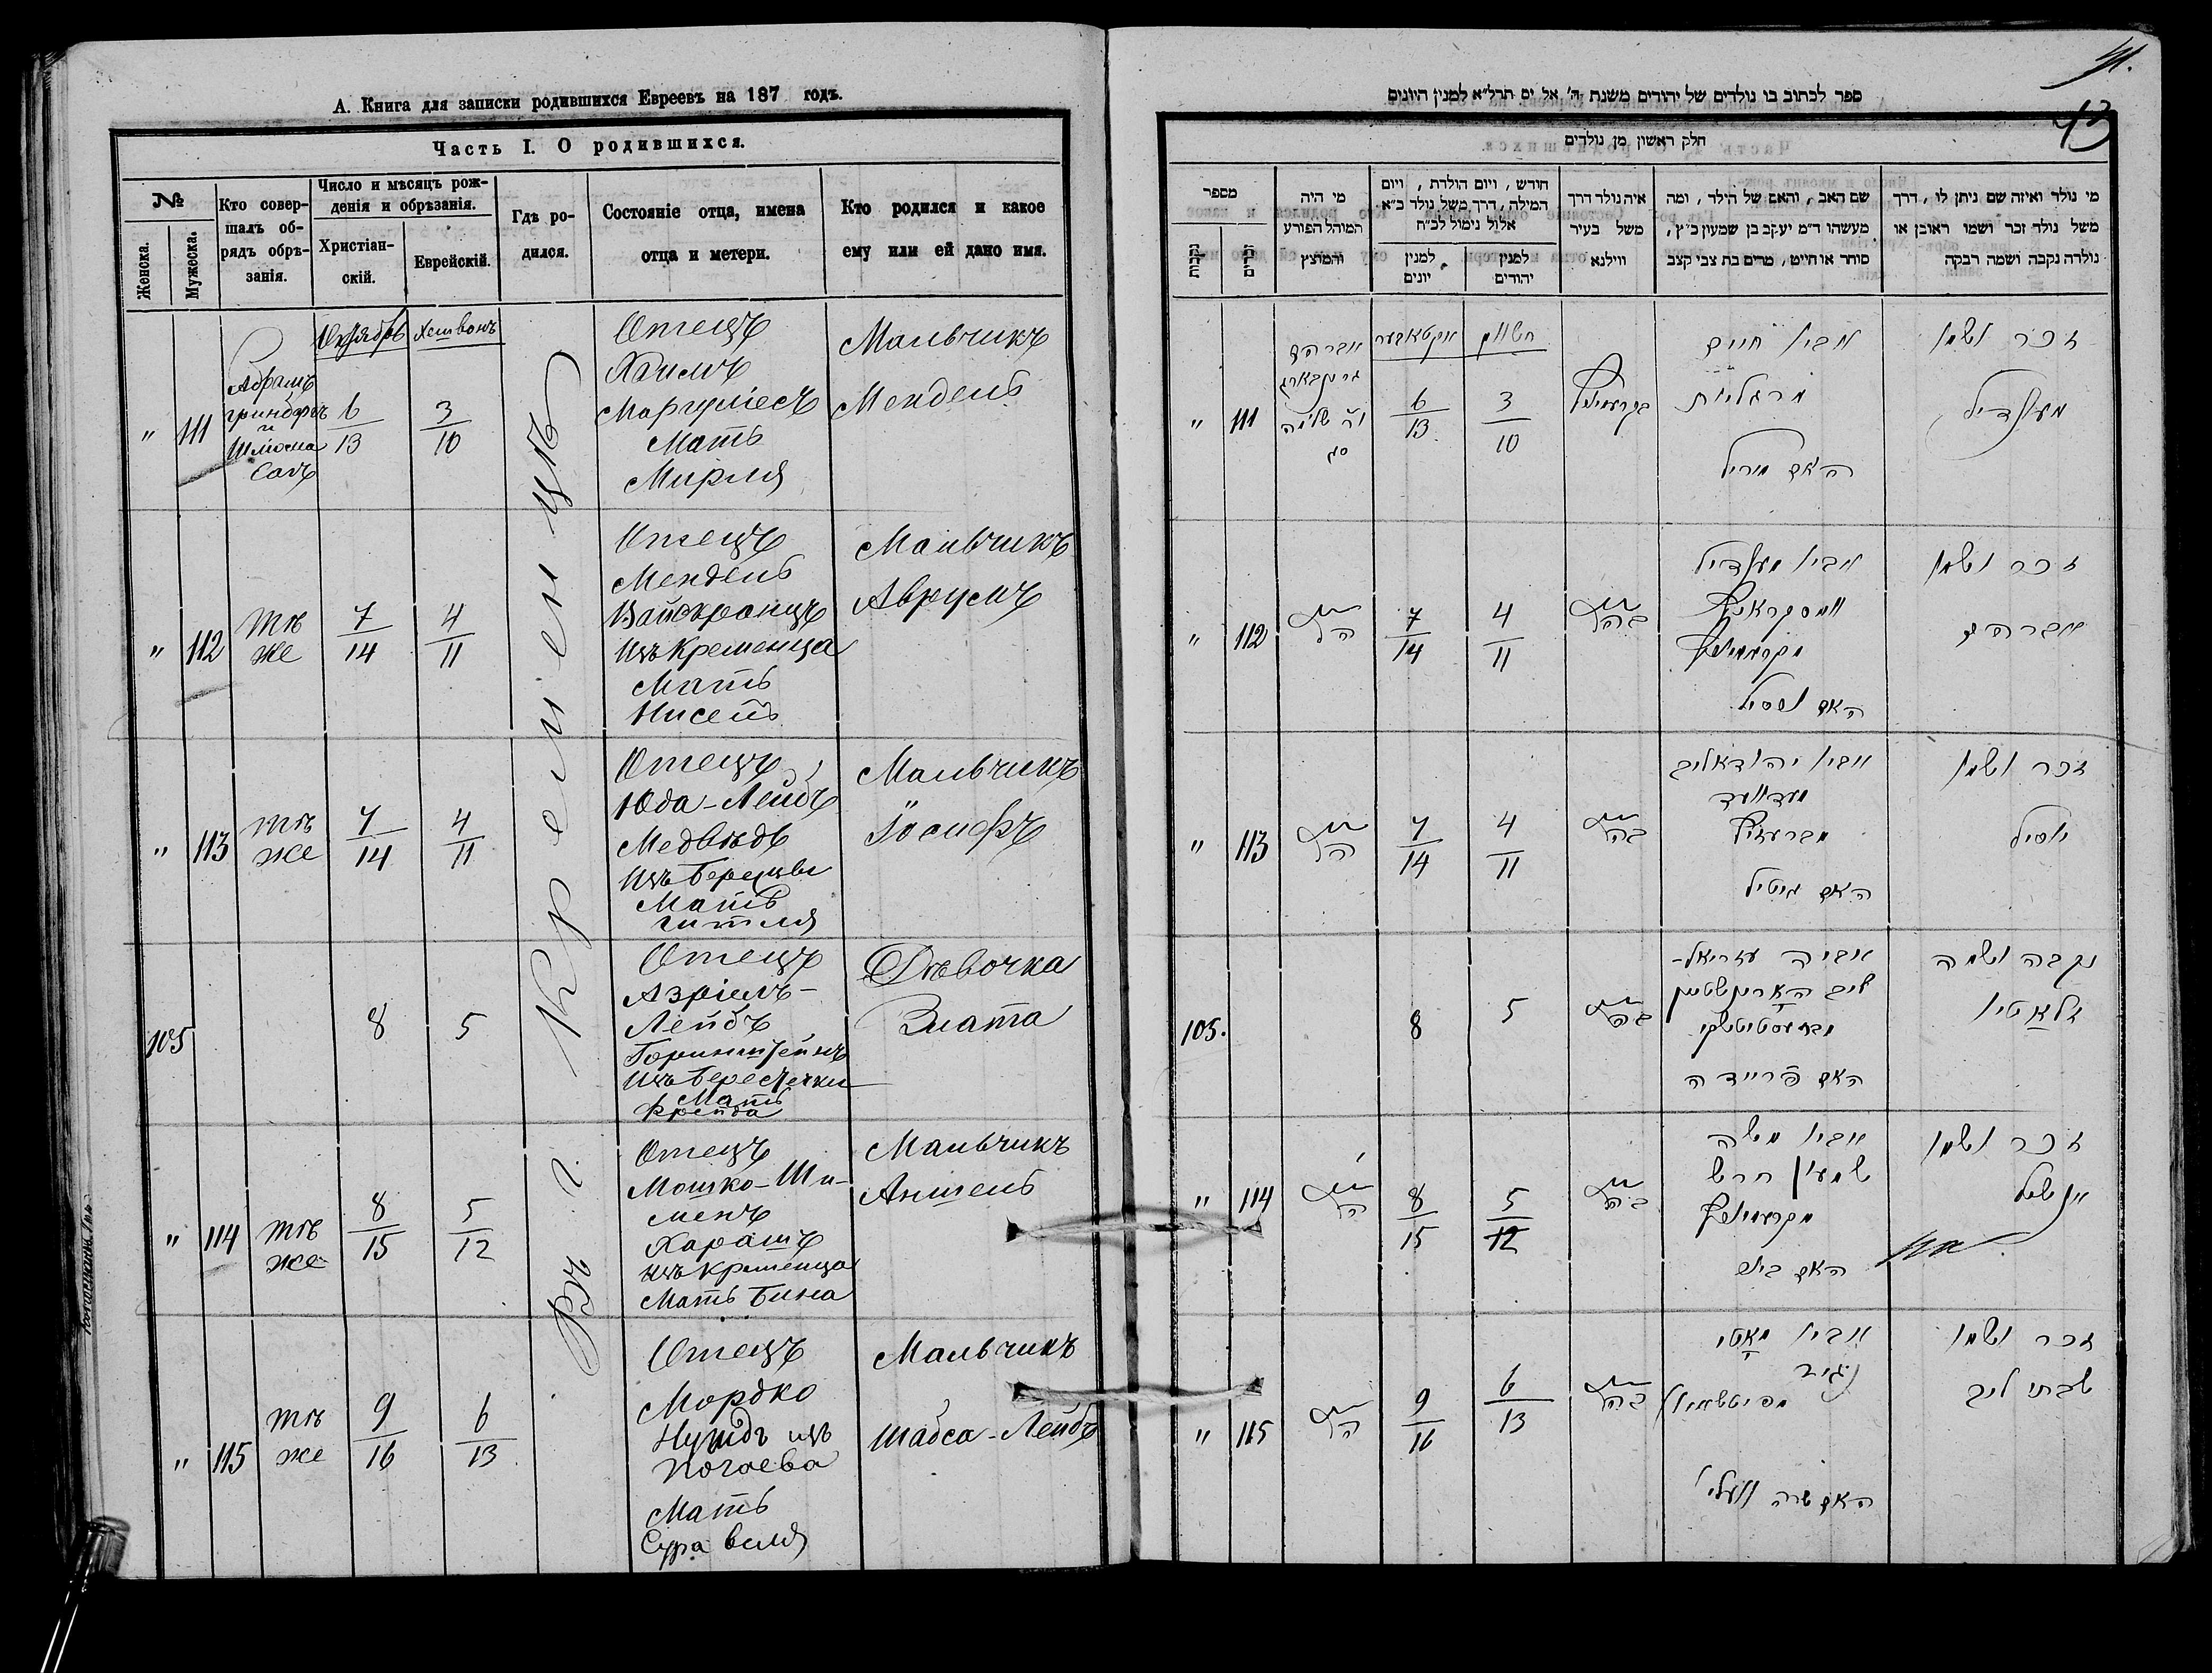 А. Книга для записки родившихся Евреевъ на 187 годъ.
Часть I. О родившихся.
№
Женска.
Мужеска.
Кто совершалъ обрядъ обрѣзанія.
Число и мѣсяцъ рожденія и обрѣзанія.
Христіанскій.
Еврейскій.
Гдѣ родился.
Состояніе отца, имена отца и метери.
Кто родился и какое ему или ей дано имя.
Октябрь Хешвонъ
Въ г. Кременцѣ
" 111
Абрамъ
и
Шлiома
6/13
3/10
Отецъ
Хаимъ
Маргулiесъ
Мать
Мирля
Мальчикъ
Мендель
" 112
Тѣ
же
7/14
4/11
Отецъ
Мендель
Вайскранцъ
изъ Кременца
Мать
Нисель
Мальчикъ
Аврумъ
" 113
Тѣ
же
7/14
4/11
Отецъ
Юда-Лейбъ
Медвѣдь
Мать
Гитля
Мальчикъ
Іосифъ
105
8
5
Отецъ
Азріель-
Лейбъ
Горинштейнъ
изъ Берестечки
Мать
Фрейда
Дѣвочка
Злата
" 114
Тѣ
же
8/15
5/12
Отецъ
Мошко-Ши-
менъ
Харашъ
изъ Кременца
Мать Бина
Мальчикъ
Аншель
" 115
Тѣ
же
9/16
6/13
Отецъ
Мордко
изъ
Почаева
Мать
Сура Веля
Мальчикъ
Шабса-Лейбъ
43
ספר לכתוב בו נולדים של יהודים משנת ה' אל ים תרל"א למנין היונים
חלק ראשון מן נולדים
מספר
נקבות
זכרים
מי היה המוהל הפורע והמוצץ
חודש, ויום הולדת, ויום המילה, דרך משל נולד כ"א אלול נימול לכ"ח
למנין יונים
למנין יהודים
איה נולד דרך משל בעיר ווילנא
שם האב, והאם של הילד, ומה מעשהו ד"מ יעקב בן שמעון כ"ץ, סוחר או חייט, מרים בת צבי קצב
מי נולד ואיזה שם ניתן לו, דרך משל נולד זכר ושמו ראובן או נולדה נקבה ושמה רבקה
אקטאבער חשון
" 111
אברהם
גרינבארג
6/13
3/10
בקרעמיניץ
אביו חיים
מרגליות
האם מירל
זכר ושמו
מענדיל
" 112
7/14
4/11
אביו מענדיל
ווייסקראנץ
מקרעמיניץ
זכר ושמו
אברהם
" 113
7/14
4/11
אביו יהודא ליב
האם גיטיל
זכר ושמו
יוסיל
105.
8
5
אביה עזריאל-
ליב הארינשטיין
האם פריידה
נקבה ושמה
זלאטי
" 114
8/15
5/12
אביו משה
שמעון חרש
מקרעמיניץ
זכר ושמו
אנשיל
" 115
9/16
6/13
אביו מאטי
זכר ושמו
שבתי ליב